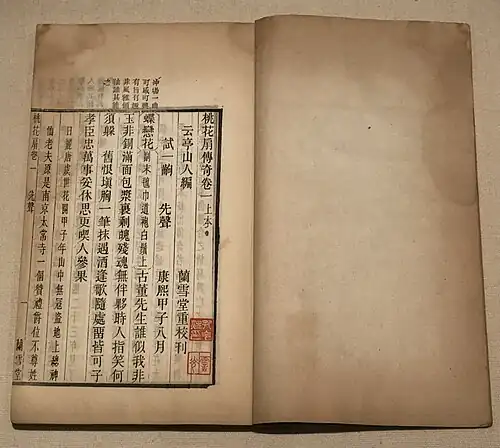 冲場一曲
可感可興
有旨有趣
非風雅領
袖誰其能
之
桃花扇傳奇卷一上本
云亭山人編 蘭雪堂重校刊
試一齣 先聲 康熙甲子八月
蝶戀花 副末氊巾道袍白鬚上 古董先生誰似我非
玉非銅滿面包漿裹剩魄殘魂無伴夥時人指笑何
須躲 舊恨填胸一筆抹遇酒逢歌隨處留皆可子
孝臣忠萬事妥休思更喫人參果
日麗唐虞世花開甲子年山中無寇盜地上總神
仙老夫原是南京太常寺一個贊禮爵位不尊姓
桃花扇卷一 先聲 蘭雪堂